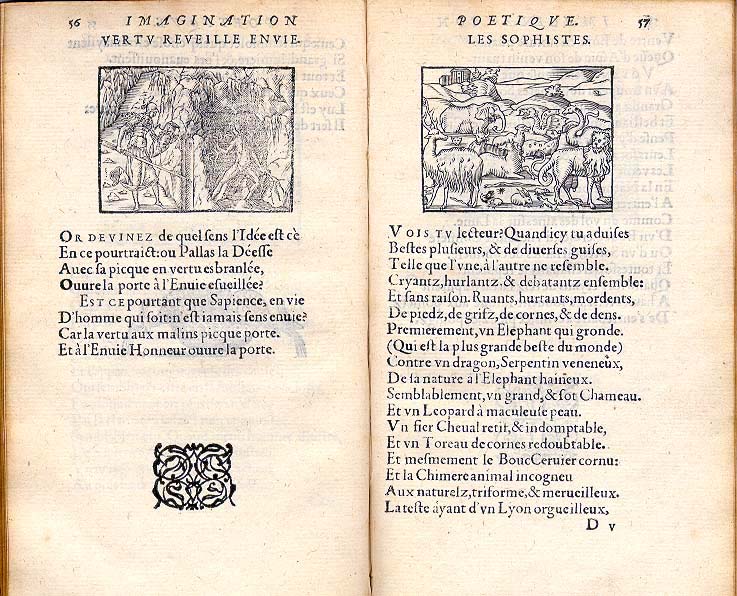 56 IMAGINATION
VERTV REVEILLE ENVIE.
OR DEVINEZ de quel sens l'Idée est cè
En ce pourtraict: ou Pallas la Déesse
Auec sa picque en vertu esbranlée,
Ouure la porte à l'Enuie esueillée?
EST CE pourtant que Sapience, en vie
D'homme qui soit: n'est iamais sens enuie?
Car la vertu aux malins picque porte.
Et à l'Enuié Honneur ouure la porte.
POETIQVE. 57
LES SOPHISTES.
VOIS TV lecteur? Quand icy tu aduises
Bestes plusieurs, & de diuerses guises,
Telle que l'vne, à l'autre ne resemble.
Cryantz, hurlantz, & debatantz ensemble:
Et sans raison. Ruants, hurtants, mordents,
De piedz, de grifz, de cornes, & de dens.
Premierement, vn Elephant qui gronde.
(Qui est la plus grande beste du monde)
Contre vn dragon, Serpentin veneneux,
De sa nature à l'Elephant haineux.
Semblablement, vn grand, & sot Chameau.
Et vn Leopard à maculeuse peau.
Vn fier Cheual retit, & indomptable,
Et vn Toreau de cornes redoubtable.
Et mesmement le Bouc Ceruier cornu:
Et la Chimere animal incogneu
Aux naturelz, triforme, & merueilleux.
La teste áyant d'vn Lyon orgueilleux,
D v